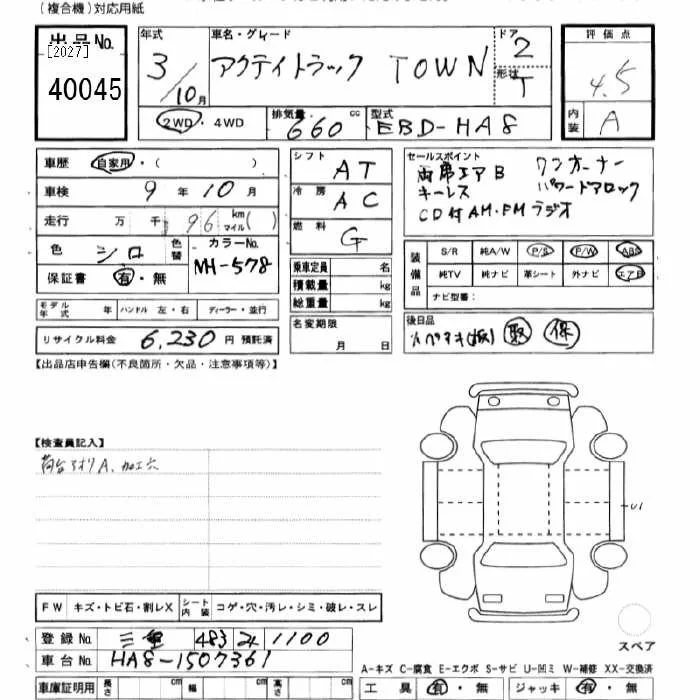 (複合機)対応用紙
出品No.
[2027]
40045
年式
3/10月
車名・グレード
アクティトラック TOWN
ドア
2
形状
T
評価点
4.5
内装
A
2WD・4WD
排気量
660 cc
型式
EBD-HA8
車歴 自家用・( )
車検 9年10月
走行 万 千 96 km マイル ( )
色 シロ 色替 カラーNo.
NH-578
保証書 有・無
モデル年式 年 ハンドル 左・右 ディーラー・並行
リサイクル料金 6,230 円 預託済
シフト AT
冷房 AC
燃料 G
乗車定員 名
積載量 kg
総重量 kg
名変期限
月 日
セールスポイント
両席エアB ワンオーナー
キーレス パワードアロック
CD付AM・FMラジオ
装備品
S/R 純A/W P/S P/W ABS
純TV 純ナビ 革シート 外ナビ エアB
ナビ型番:
後日品
取 保
【出品店申告欄(不良箇所・欠品・注意事項等)】
【検査員記入】
荷台アオリA、加エ穴
U1
FW キズ・トビ石・割レX シート内装 コゲ・穴・汚レ・シミ・破レ・スレ
スペア
登録No. 三重 483 1100
車台No. HA8-1507361
A-キズ C-腐食 E-エクボ S-サビ U-凹ミ W-補修 XX-交換済
車庫証明用 長さ cm 幅 cm 高さ cm
工具 有・無 ジャッキ 有・無